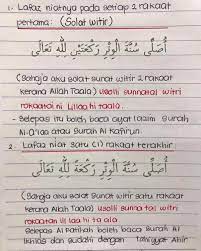 1. Lafaz niatnya pada setiap 2 rakaat
pertama: (Solat witir)
أُصَلِّى سُنَّةَ الْوِتْرِ رَكْعَتَيْنِ لِلَّهِ تَعَالَى
(Sahaja aku solat sunat witir 2 rakaat
kerana Allah Taala) usolli sunnatal witri
rokaatai ni Lillaa hi taala.
- Selepas itu boleh baca ayat lazim surah
Al-A'laa atau Surah Al Kafirun.
2. Lafaz niat satu (1) rakaat terakhir.
أُصَلِّى سُنَّةَ الْوِتْرِ رَكْعَةً لِلَّهِ تَعَالَى
(Sahaja aku solat Sunat witir satu rakaat
kerana Allah Taala) usolli sunna tal witri
rokaatan lil laa hi ta ala
Selepas Al Fatihah boleh baca Surah Al
Ikhlas dan sudahi dengan Tahiyyat Akhir